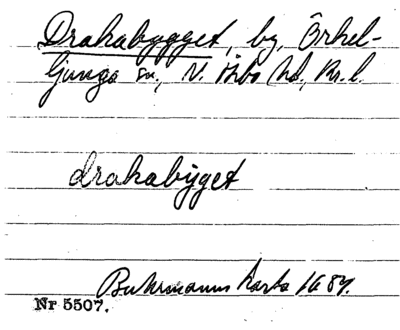 Drakabygget, by, Örkel-
ljunga sn., N. Åsbo hd, Kr. l.
drakabÿget
Buhrmanns karta 1684.
Nr 5507.